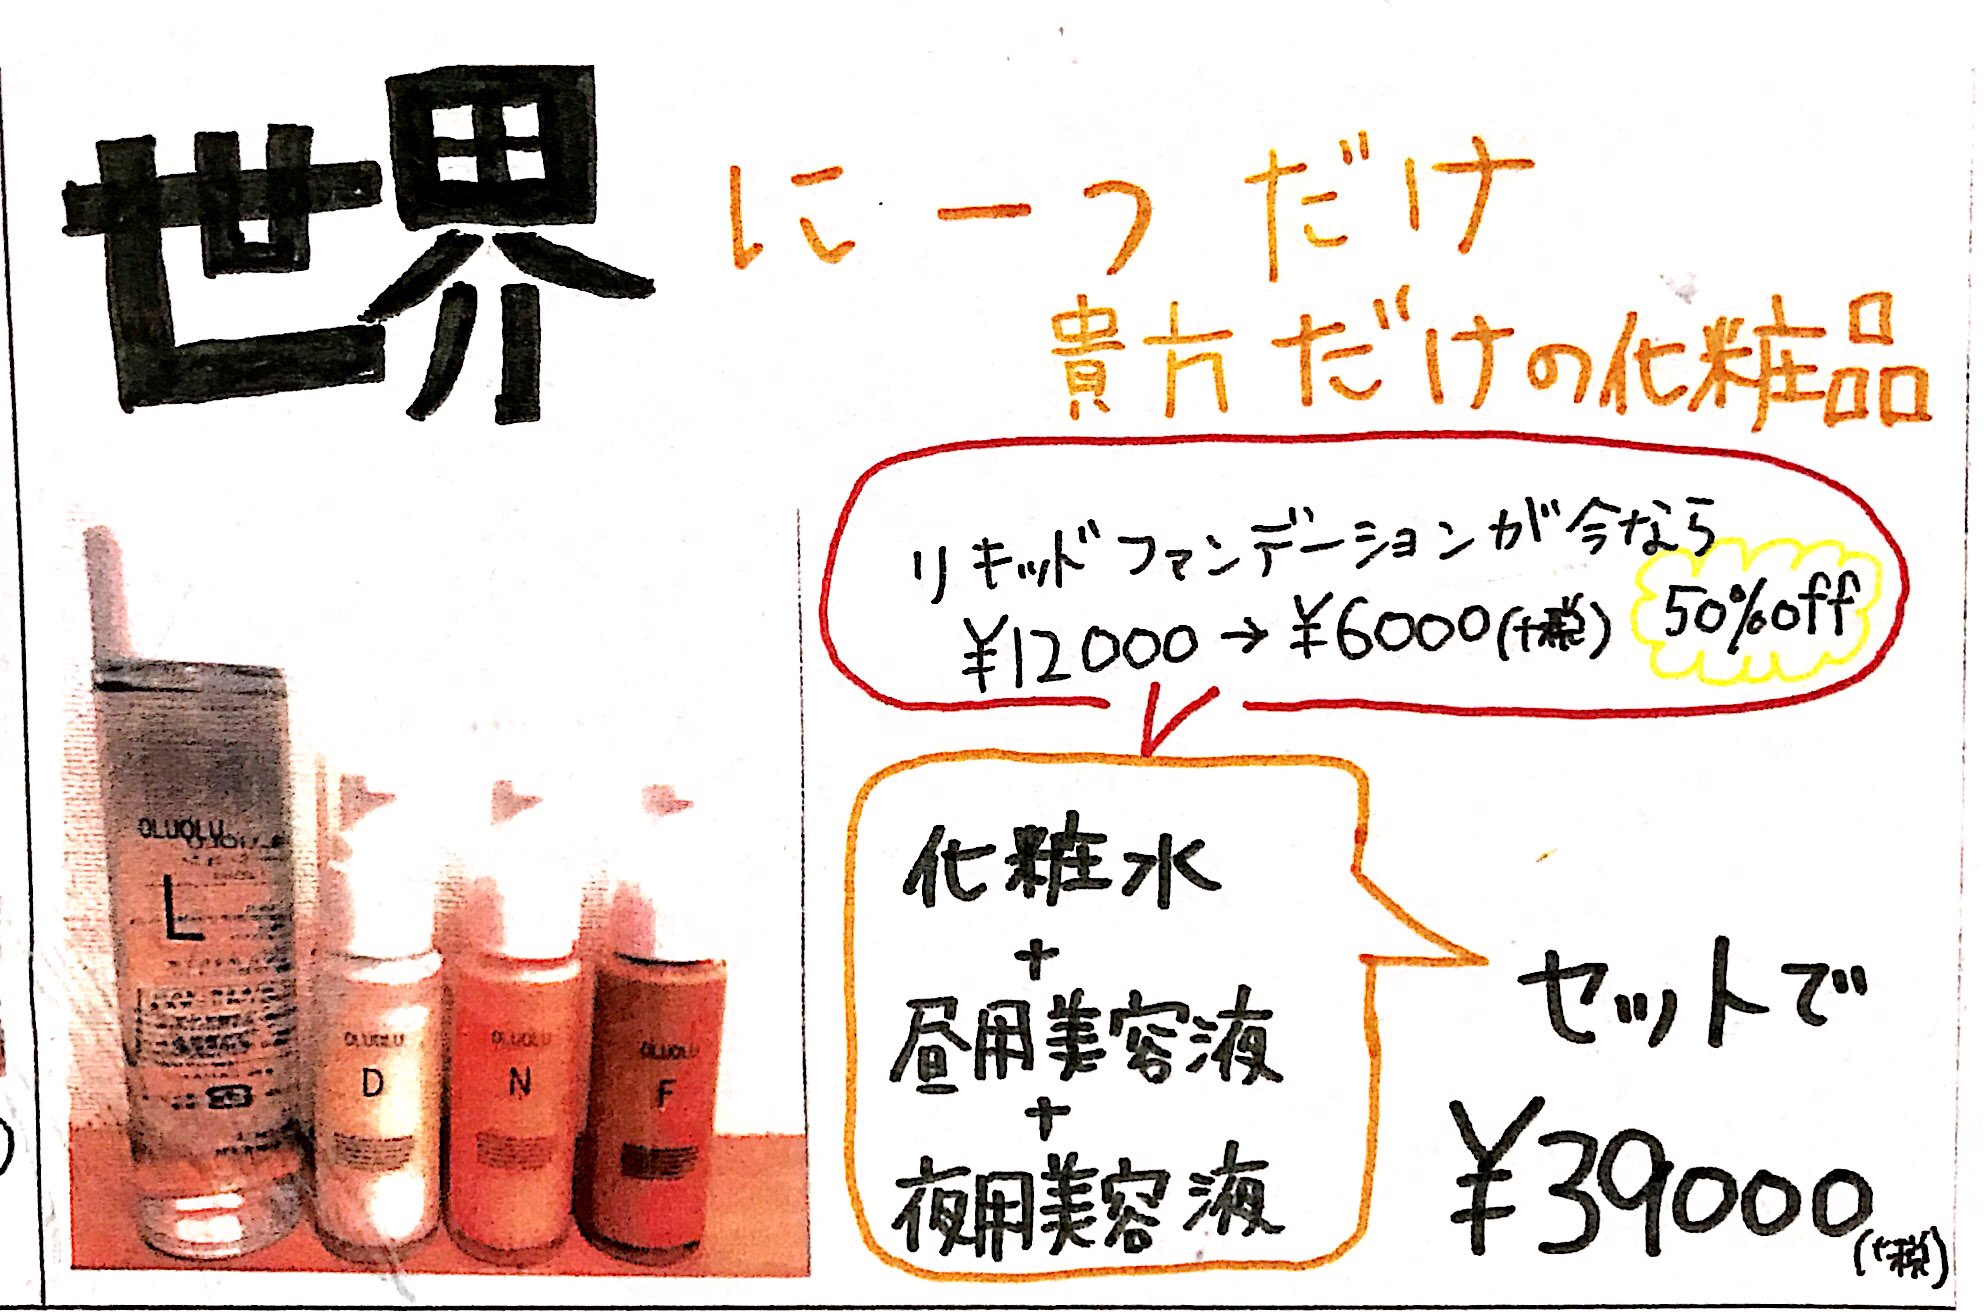 世界に一つだけ
貴方だけの化粧品
リキッドファンデーションが今なら
¥12000→¥6000(+税) 50%off
化粧水
+
昼用美容液
+
夜用美容液
セットで
¥39000(+税)
OLUOLU
L
OLUOLU
D
OLUOLU
N
OLUOLU
F